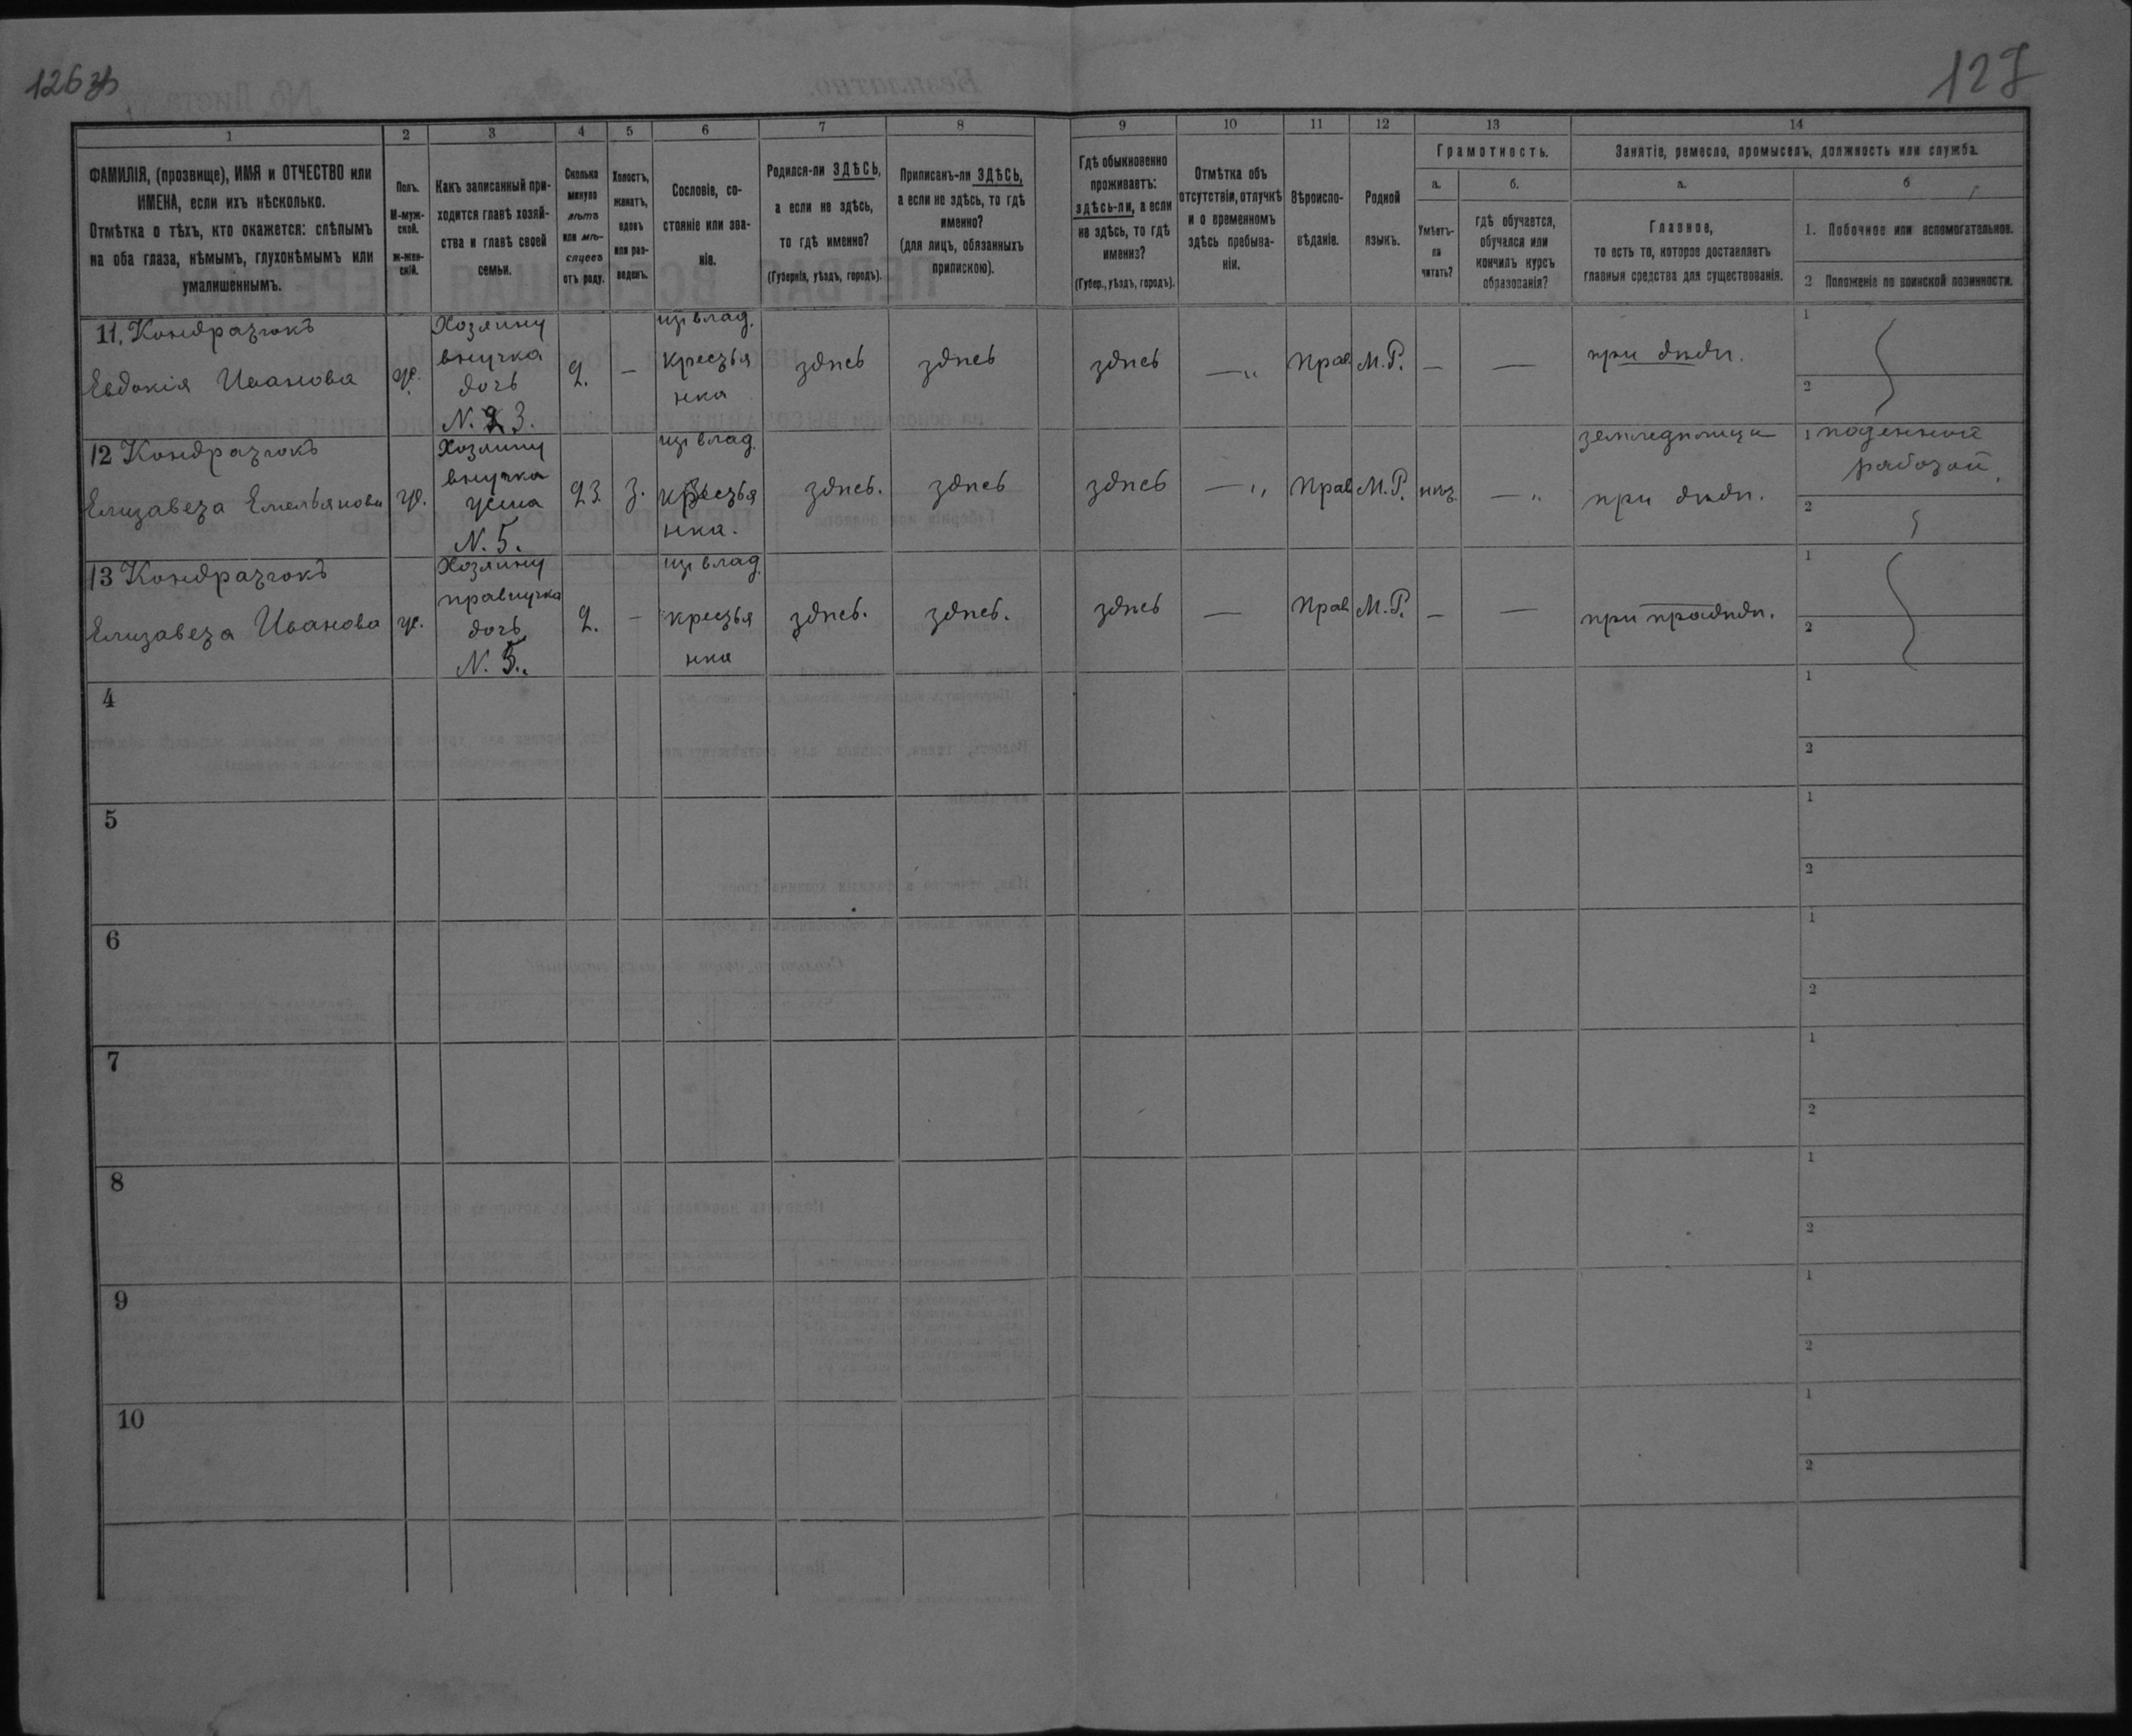 126 зв
127
1
2
3
4
5
6
7
8
9
10
11
12
13
14
ФАМИЛІЯ, (прозвище), ИМЯ и ОТЧЕСТВО или
ИМЕНА, если ихъ нѣсколько.
Отмѣтка о тѣхъ, кто окажется: слѣпымъ
на оба глаза, нѣмымъ, глухонѣмымъ или
умалишеннымъ.
Полъ.
М-муж-
ской.
ж-жен-
скій.
Какъ записанный при-
ходится главѣ хозяй-
ства и главѣ своей
семьи.
Сколько
минуло
лѣтъ
или мѣ-
сяцевъ
отъ роду.
Холостъ,
женатъ,
вдовъ
или раз-
веденъ.
Сословіе, со-
стояніе или зва-
ніе.
Родился-ли ЗДѢСЬ,
а если не здѣсь,
то гдѣ именно?
(Губернія, уѣздъ, городъ).
Приписанъ-ли ЗДѢСЬ,
а если не здѣсь, то гдѣ
именно?
(для лицъ, обязанныхъ
припискою).
Гдѣ обыкновенно
проживаетъ:
здѣсь-ли, а если
не здѣсь, то гдѣ
именно?
(Губер., уѣздъ, городъ).
Отмѣтка объ
отсутствіи, отлучкѣ
и о временномъ
здѣсь пребыва-
ніи.
Вѣроиспо-
вѣданіе.
Родной
языкъ.
Грамотность.
а.
Умѣетъ-
ли
читать?
б.
гдѣ обучается,
обучался или
кончилъ курсъ
образованія?
Занятіе, ремесло, промыселъ, должность или служба.
а.
Главное,
то есть то, которое доставляетъ
главныя средства для существованія.
б
1. Побочное или вспомогательное.
2 Положеніе по воинской повинности.
11. Кондратюкъ
Евдокія Иванова
ж.
Хозяину
внучка
дочь
N. 3.
2.
—
изъ влад.
крестья
нка
здѣсь
здѣсь
здѣсь
—„
Прав
М.Р.
—
—
при дѣдѣ.
1
2
12 Кондратюкъ
Елизавета Емельянова
ж.
Хозяину
внучка
жена
N. 5.
23.
з.
изъ влад.
крестья
нка.
здѣсь.
здѣсь
здѣсь
—„
Прав
М.Р.
нѣт.
—„
земледѣлица
при дѣдѣ.
1 поденной
работой
2
13 Кондратюкъ
Елизавета Иванова
ж.
Хозяину
правнучка
дочь
N. 5.
2.
—
изъ влад.
крестья
нка
здѣсь.
здѣсь.
здѣсь
—
Прав
М.Р.
—
—
при прадѣдѣ.
1
2
4
1
2
5
1
2
6
1
2
7
1
2
8
1
2
9
1
2
10
1
2